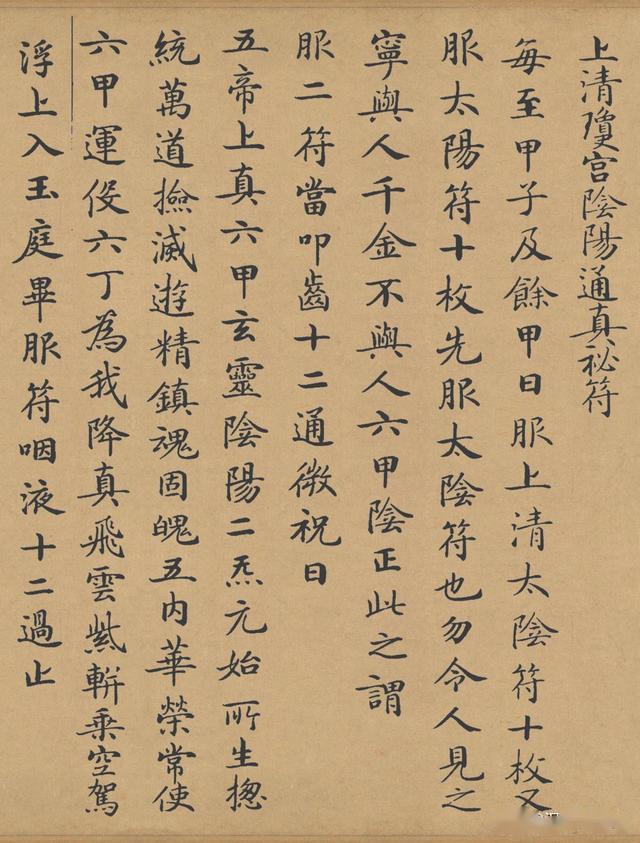 上清瓊宮陰陽通真祕符
每至甲子及餘甲日服上清太陰符十枚又
服太陽符十枚先服太陰符也勿令人見之
寧與人千金不與人六甲陰正此之謂
服二符當叩齒十二通微祝曰
五帝上真六甲玄靈陰陽二炁元始所生揔
統萬道撿滅遊精鎮魂固魄五内華榮常使
六甲運役六丁為我降真飛雲紫軿乗空駕
浮上入玉庭畢服符咽液十二過止